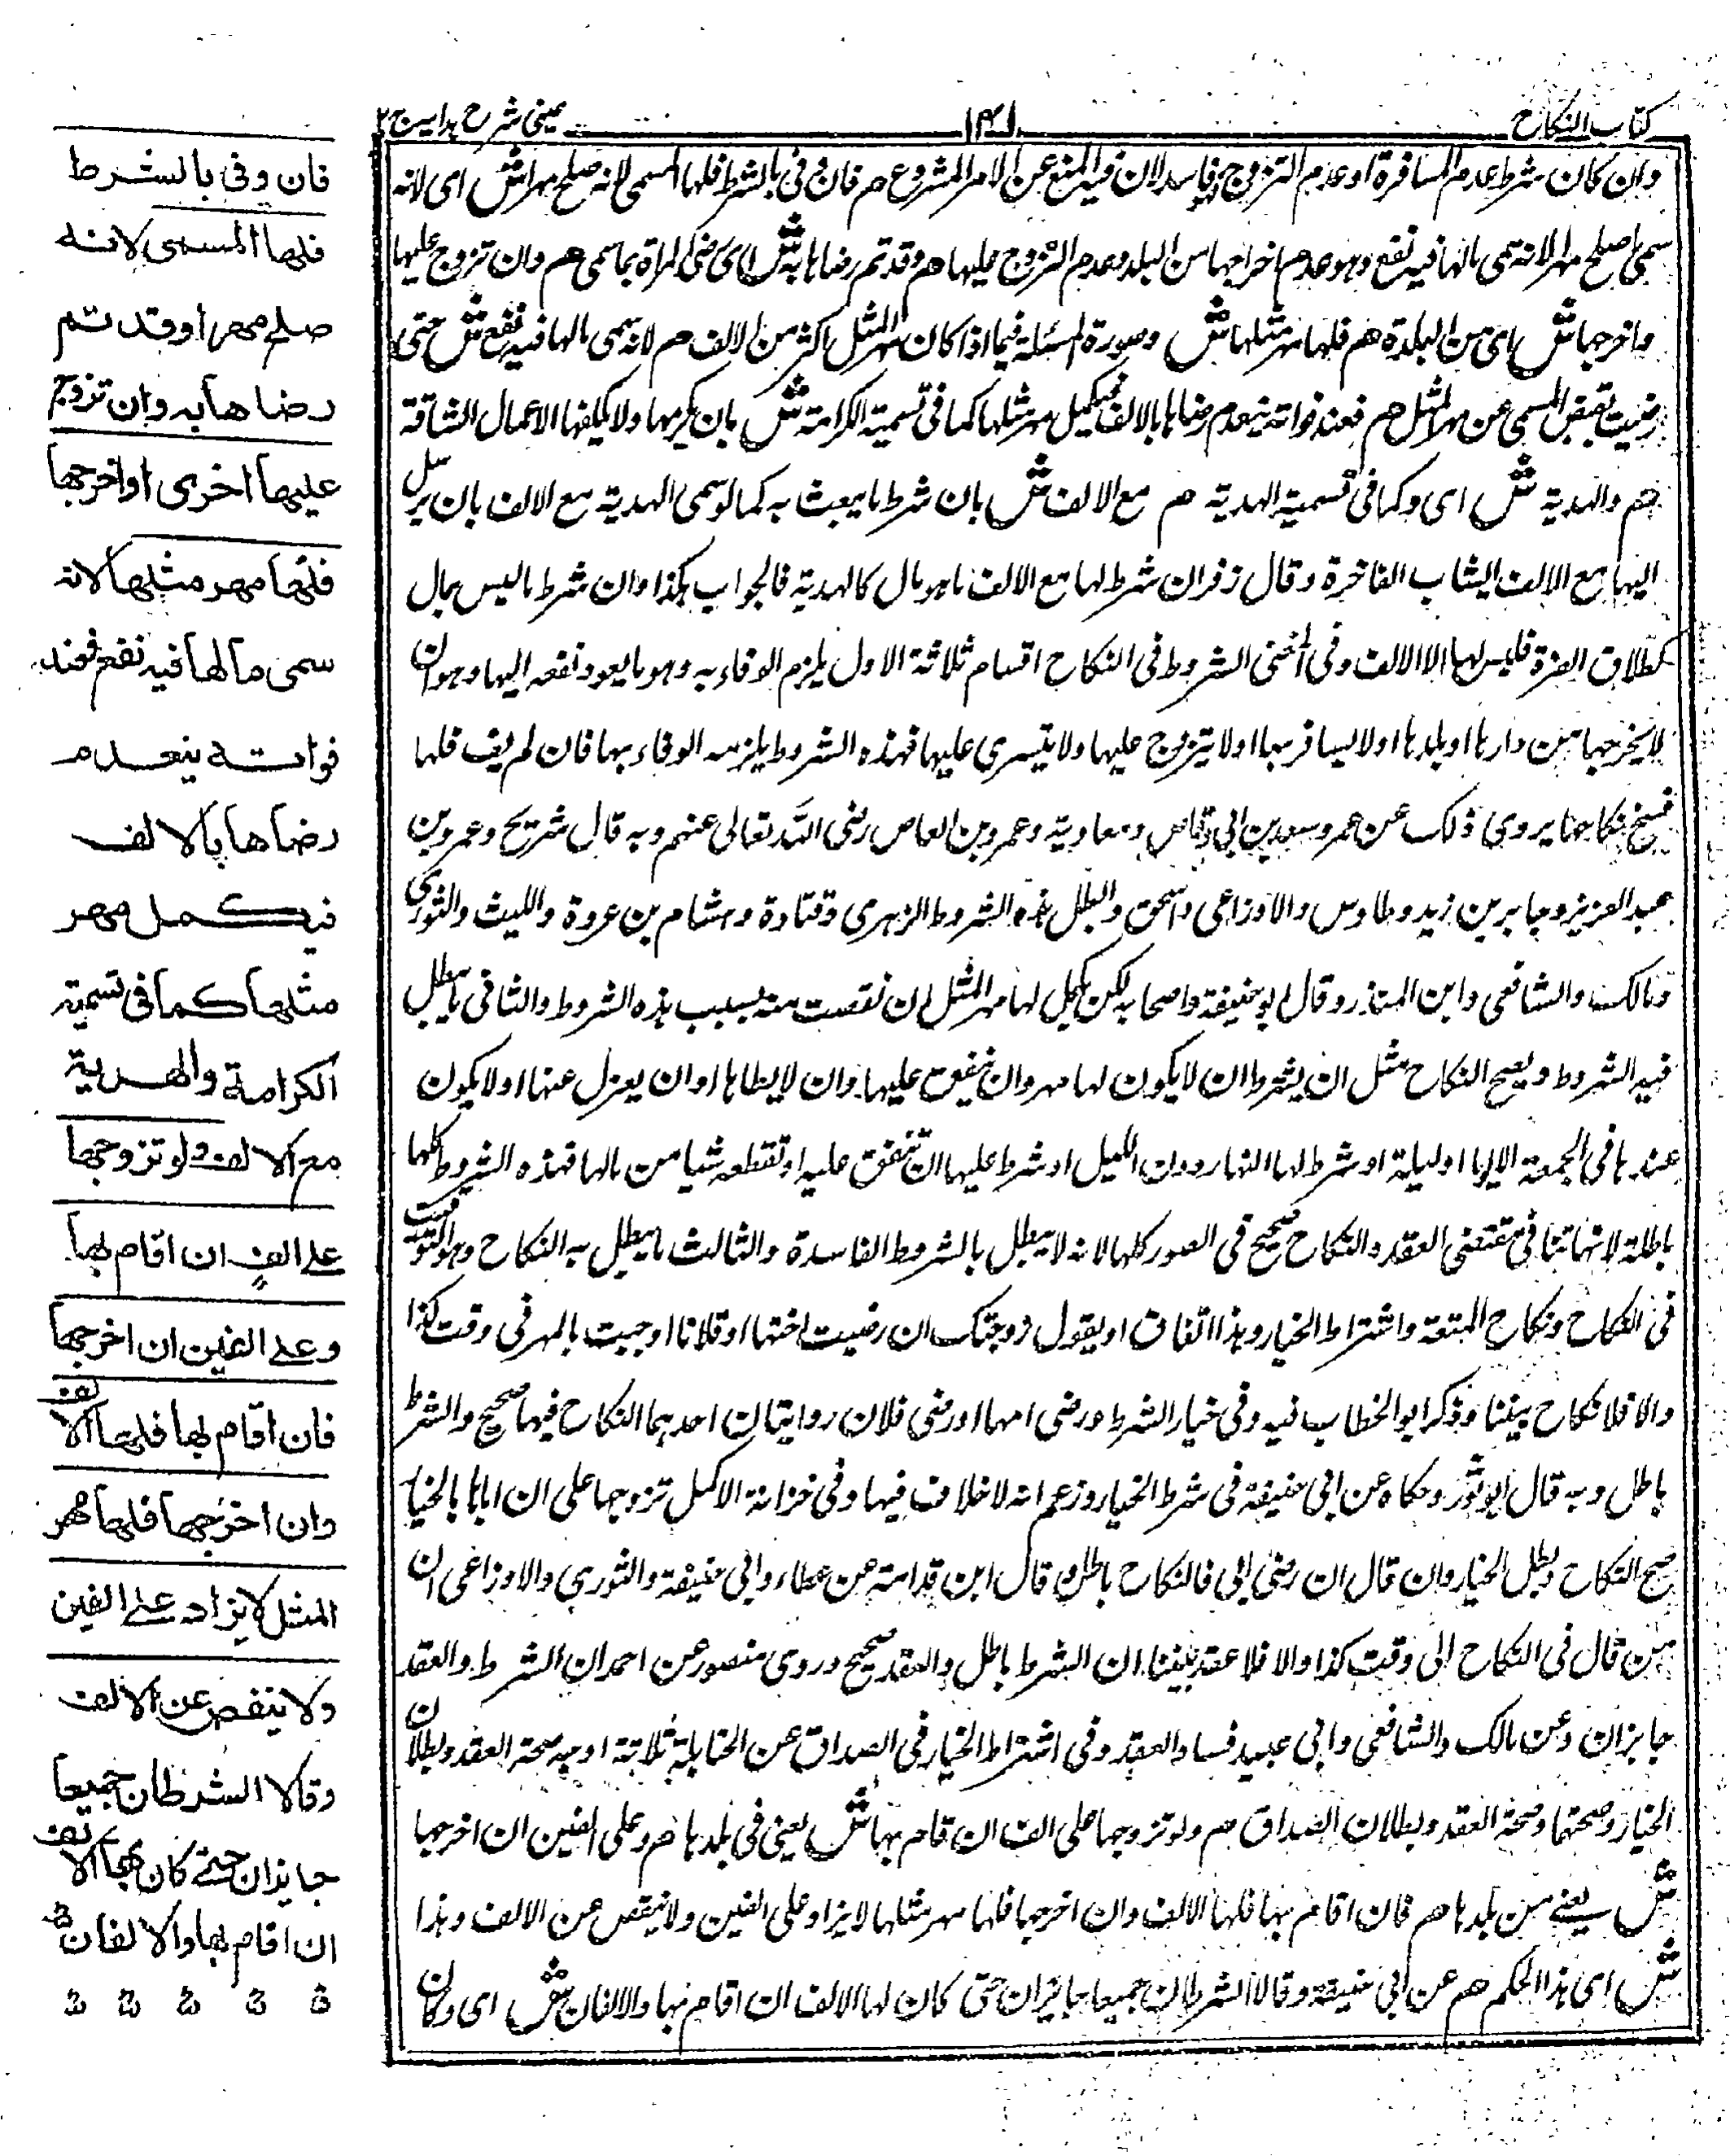 كتاب النكاح
١٤١
عينى شرح هدايه ج ٢
وان كان شرط عدم المسافرة او عدم التزوج فاسد لان فيه المنع عن الامر المشروع هم فان وفى بالشرط فلها المسمى لانه صلح مهرا ش اى لانه
سمى ما صلح مهرا لانه سمى مالها فيه نفع وهو عدم اخراجها من البلد وعدم التزوج عليها هم وقد تم رضاها به ش اى رضى المراة بما سمى هم وان تزوج عليها
واخرجها ش اى من البلدة هم فلها مهر مثلها ش وصورة المسئلة فيما اذا كان مهر المثل اكثر من الالف هم لانه سمى مالها فيه نفع ش حتى
رضيت بنقص المسمى عن مهر المثل هم فعند فواته ينعدم رضاها بالالف فيكمل مهر مثلها كما فى تسمية الكرامة ش بان يكرمها ولا يكلفها الاعمال الشاقة
هم والهدية ش اى وكما فى تسمية الهدية هم مع الالف ش بان شرط ما يبعث به كما لو سمى الهدية مع الالف بان يرسل
اليها مع الالف الثياب الفاخرة وقال زفر ان شرط لها مع الالف ما هو مال كالهدية فالجواب هكذا وان شرط ما ليس بمال
كطلاق الضرة فليس لها الا الالف وفى المغنى الشروط فى النكاح اقسام ثلاثة الاول يلزم الوفاء به وهو ما يعود نفعه اليها وهو ان
لا يخرجها من دارها او بلدها او لا يسافر بها او لا يتزوج عليها ولا يتسرى عليها فهذه الشروط يلزمه الوفاء بها فان لم يف فلها
فسخ نكاحها يروى ذلك عن عمر وسعد بن ابى وقاص ومعاوية وعمرو بن العاص رضى الله تعالى عنهم وبه قال شريح وعمر بن
عبد العزيز وجابر بن زيد وطاوس والاوزاعى واسحق وابطل هذه الشروط الزهرى وقتادة وهشام بن عروة والليث والثورى
ومالك والشافعى وابن المنذر وقال ابو حنيفة واصحابه لكن يكمل لها مهر المثل ان نقصت منه بسبب هذه الشروط والثانى ما يبطل
فيه الشروط ويصح النكاح مثل ان يشرط ان لا يكون لها مهر وان ينفق عليها وان لا يطاها او ان يعزل عنها او لا يكون
عندها فى الجمعة الا يوما او ليلة او شرط لها النهار دون الليل او شرط عليها ان تنفق عليه او تقطعه شيا من مالها فهذه الشروط كلها
باطلة لانها تنافى مقتضى العقد والنكاح صحيح فى الصور كلها لانه لا يبطل بالشروط الفاسدة والثالث ما يبطل به النكاح وهو التوقيت
فى النكاح ونكاح المتعة واشتراط الخيار وهذا اتفاق او يقول زوجتك ان رضيت اختها او فلانا او جيت بالمهر فى وقت كذا
والا فلا نكاح بيننا وذكر ابو الخطاب فيه وفى خيار الشرط ورضى امها او رضى فلان روايتان احدهما النكاح فيها صحيح والشرط
باطل وبه قال ابو ثور وحكاه عن ابى حنيفة فى شرط الخيار وزعم انه لا خلاف فيها وفى خزانة الاكمل تزوجها على ان اباها بالخيار
صح النكاح وبطل الخيار وان قال ان رضى ابى فالنكاح باطل وقال ابن قدامة عن عطاء وابى حنيفة والثورى والاوزاعى ان
من قال فى النكاح الى وقت كذا والا فلا عقد بيننا ان الشرط باطل والعقد صحيح وروى منصور عن احمد ان الشرط والعقد
جايزان وعن مالك والشافعى وابى عبيد فساد العقد وفى اشتراط الخيار فى الصداق عن الحنابلة ثلاثة اوجه صحة العقد وبطلان
الخيار وصحتها وصحة العقد وبطلان الصداق هم ولو تزوجها على الف ان اقام بها ش يعنى فى بلدها هم وعلى الفين ان اخرجها
ش يعنے من بلدها هم فان اقام بها فلها الالف وان اخرجها فلها مهر مثلها لا يزاد على الفين ولا ينقص عن الالف وهذا
ش اى هذا الحكم هم عن ابى حنيفة وقالا الشرطان جميعا جائزان حتى كان لها الالف ان اقام بها والالفان ش اى وكان
فان وفى بالشرط
فلها المسمى لانه
صلح مهرا وقد تم
رضاها به وان تزوج
عليها اخرى او اخرجها
فلها مهر مثلها لانه
سمى ما لها فيه نفع فعند
فواته ينعدم
رضاها بالالف
فيكمل مهر
مثلها كما فى تسمية
الكرامة والهدية
مع الالف ولو تزوجها
على الف ان اقام بها
وعلى الفين ان اخرجها
فان اقام بها فلها الالف
وان اخرجها فلها مهر
المثل لا يزاد على الفين
ولا ينقص عن الالف
وقالا الشرطان جميعا
جايزان حتے كان لها الالف
ان اقام بها والالفان